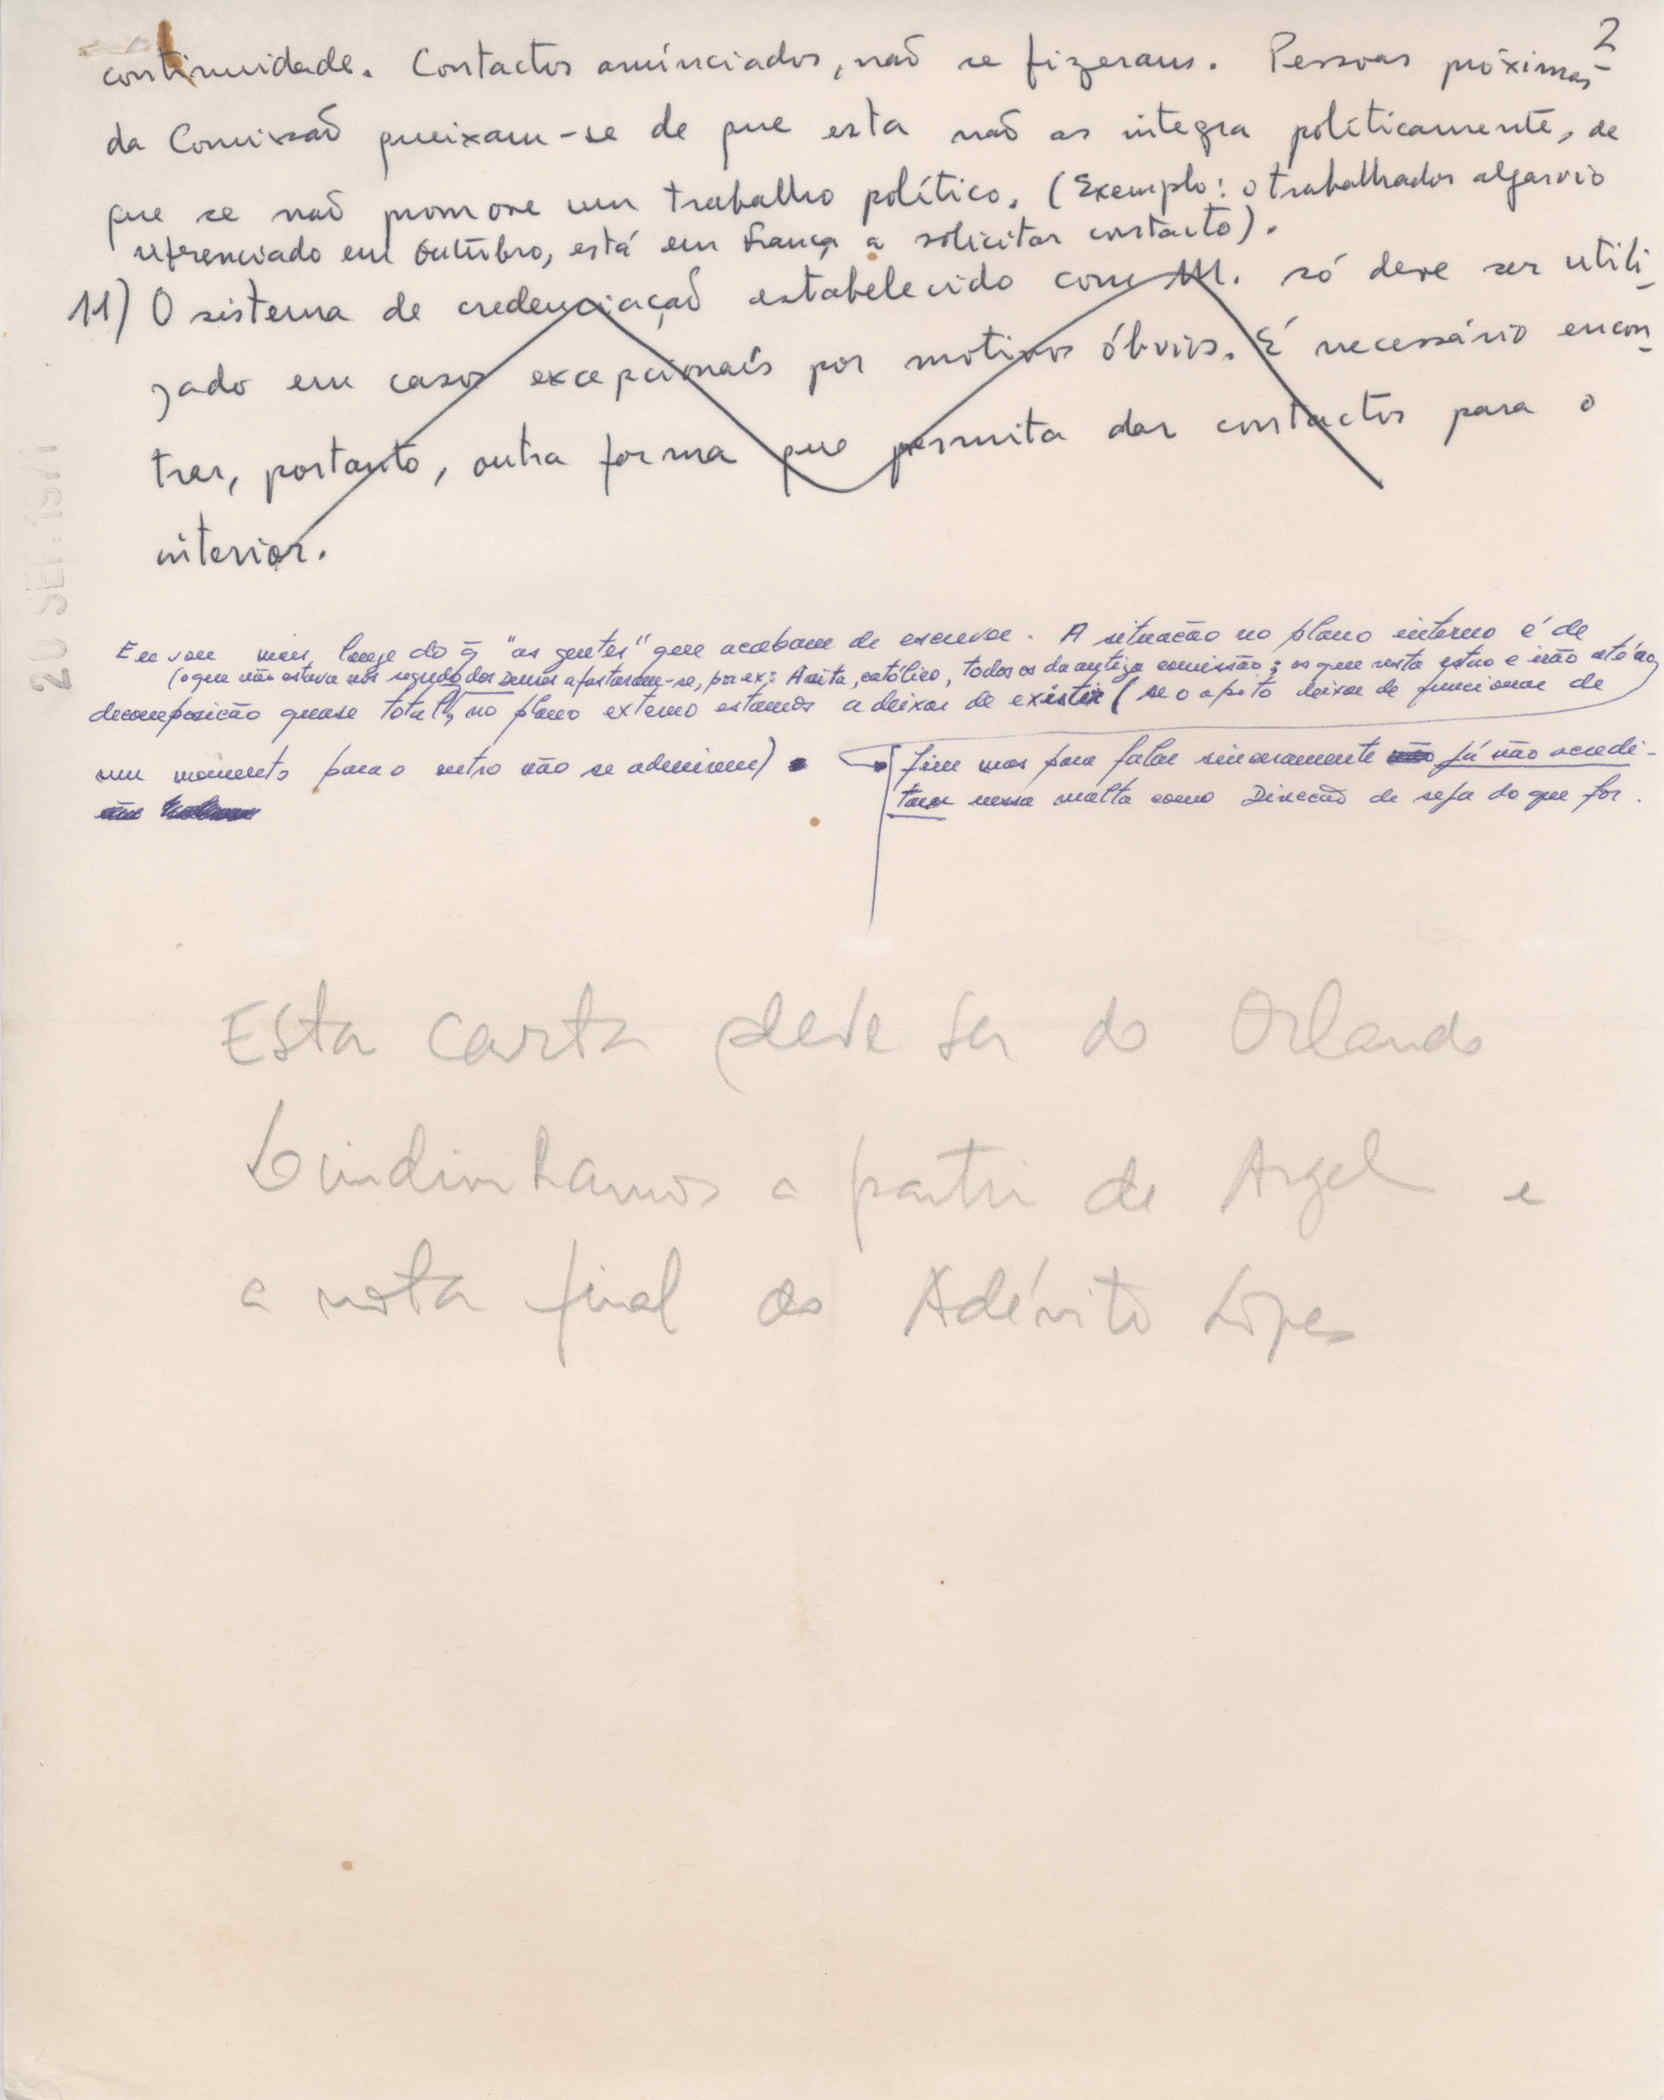 2
continuidade. Contactos anúnciados, não se fizeram. Pessoas próximas
da Comissão queixam-se de que esta não as integra politicamente, de
que se não promove um trabalho político. (Exemplo: o trabalhador algarvio
referenciado em Outubro, está em França a solicitar contacto).
11) O sistema de credenciação estabelecido com M. só deve ser utili-
zado em casos excepcionais por motivos óbvios. É necessário encon-
trar, portanto, outra forma que permita dar contactos para o
interior.
20 SET. 1971
Eu vou mais longe do q̃ "as gentes" que acabam de escrever. A situação no plano interno é de
(o que não estava nos segundo dos demos afastaram-se, por ex: Anita, católico, todos os da antiga comissão; os que resta estão e irão até ao
decomposição quase total, no plano externo estamos a deixar de existir (se o apito deixar de funcionar de
um momento para o outro não se admirem)
fim mas para falar sinceramente já não acredi-
tam nessa malta como Direcção de seja do que for.
Esta carta deve ser do Orlando
Lindinhamos a partir de Argel e
a nota final do Adérito Lopes